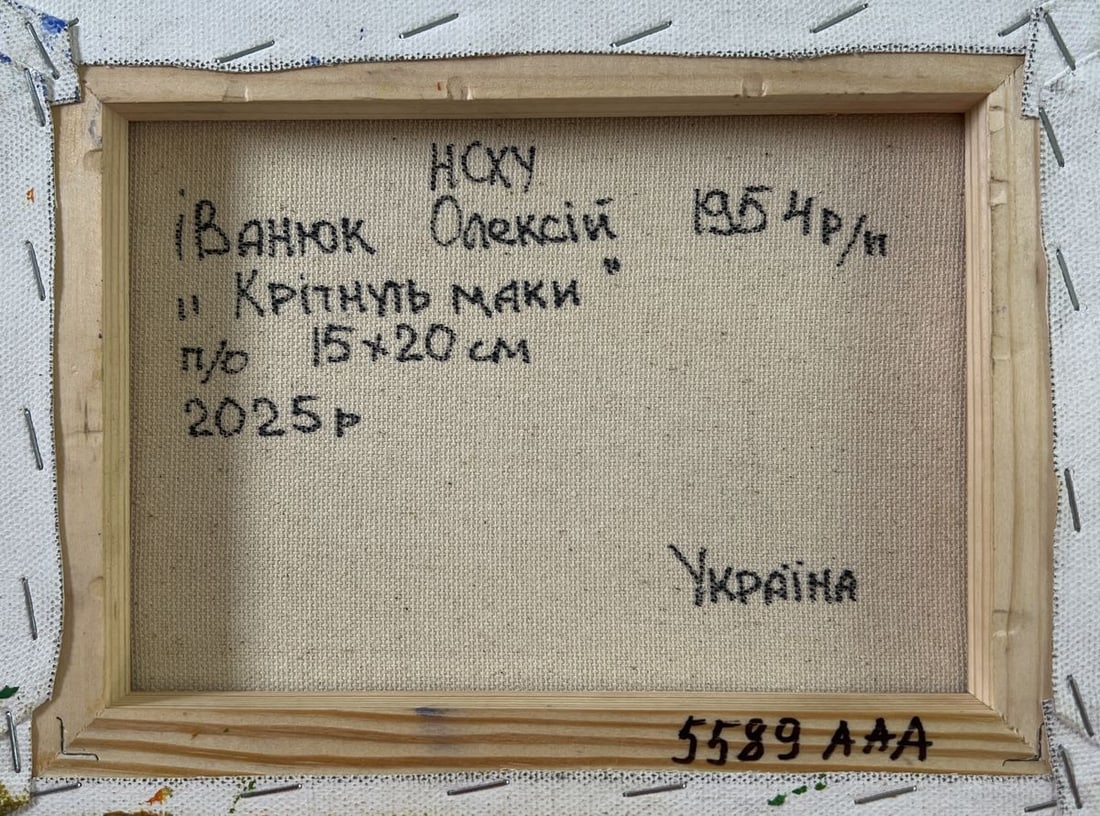 НСХУ
іВанюк Олексій 1954р/н
„ Крітнуть маки "
п/о 15×20 см
2025р
Україна
5589 ААА